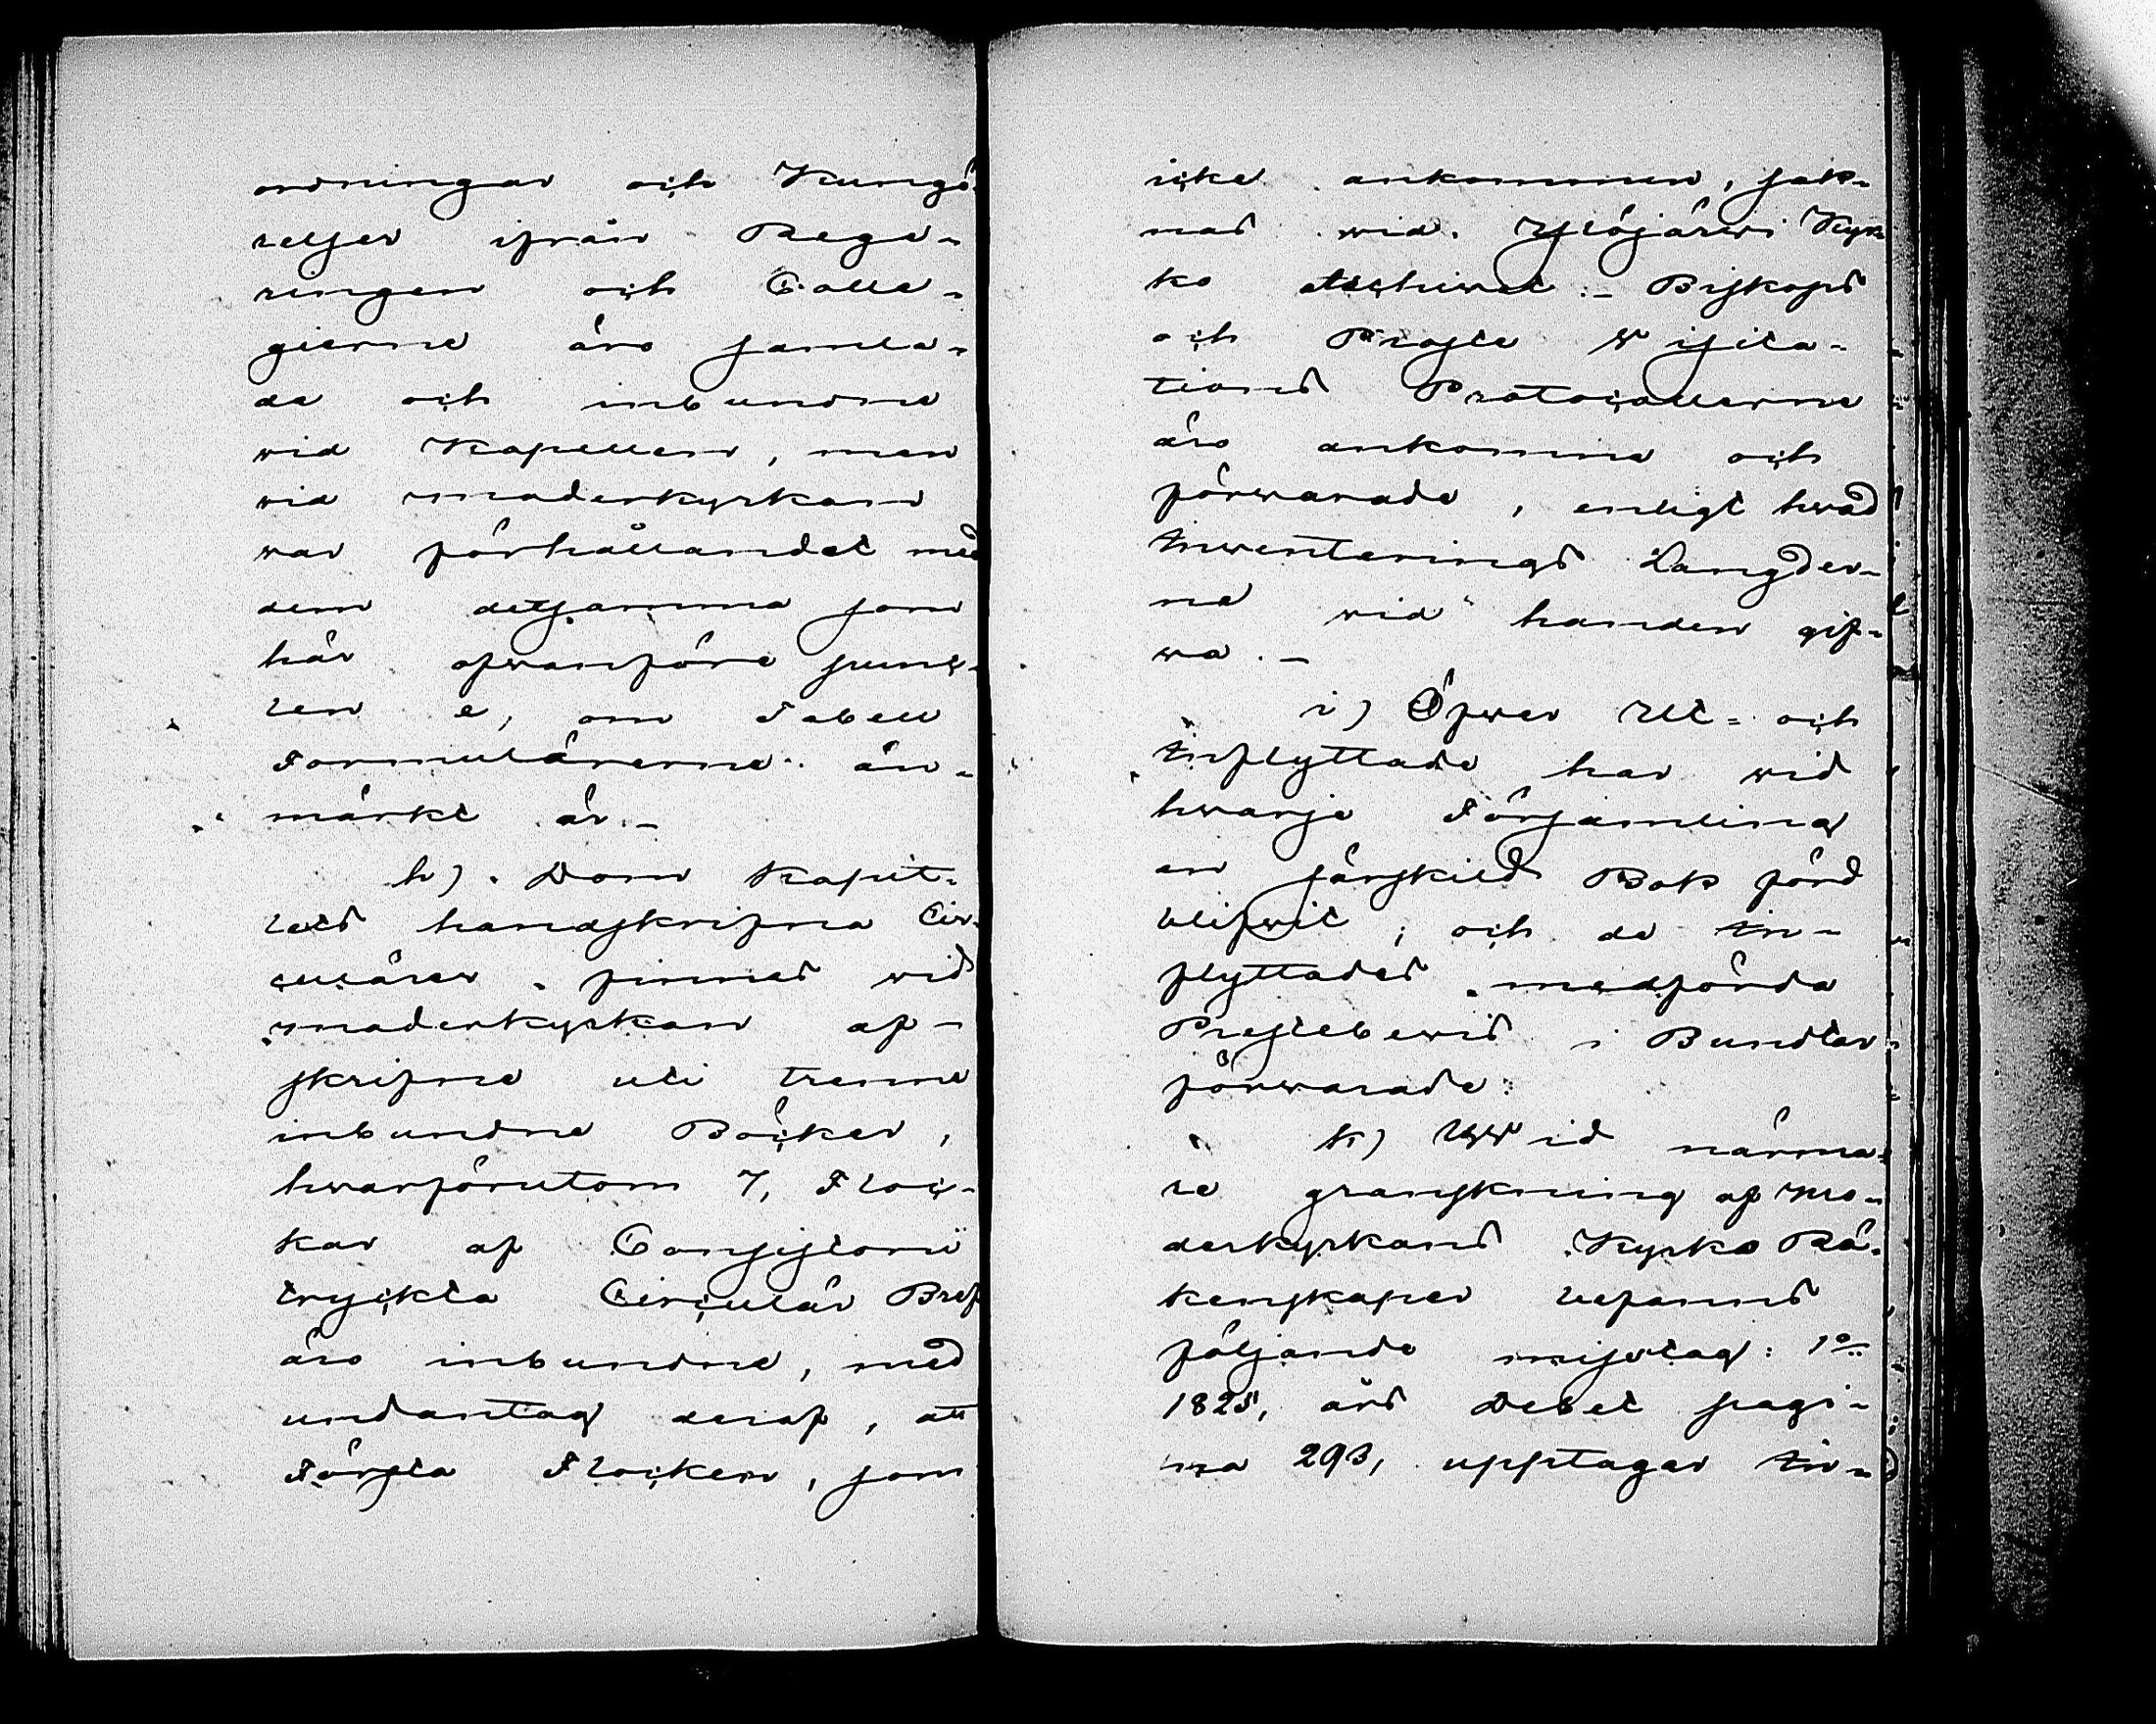 ordningar och Kungö-
relser ifrån Rege-
ringen och Colle-
gierne äro samla-
de och inbundne
vid Kapellen, men
vid moderkyrkan
var förhållandet med
dem detsamma som
här ofvanföre punc-
ten e, om Tabell
Formulärerne an-
märkt är.-
h). Dom Kapit-
lets handskrifna Cir-
culärer finnas vid
moderkyrkan af-
skrifne uti trenne
inbundne Böcker,
hvarförutom 7, Floc-
kar af Consistorii
tryckta Circulär Bref
äro inbundne, med
undantag deraf, att
Första Flocken, som
icke ankommen, sak-
nas vid Ylöjärvi Kyr-
ko Archivet.- Biskops
och Proste Visita-
tions Protocollerne
äro ankomne och
förvarade, enligt hvad
Inventerings Längder-
ne vid handen gif-
va.-
i) Öfver Ut- och
Inflyttade har vid
hvarje Församling
en särskild Bok förd
blifvit; och de In-
flyttades medförda
Prestbevis i Bundtar
förvarade.
k) Wid närma-
re granskning af Mo-
derkyrkans Kyrko Rä-
kenskaper befanns
följande misstag: 1o
1825, års Debet pagi-
na 293, upptager In-